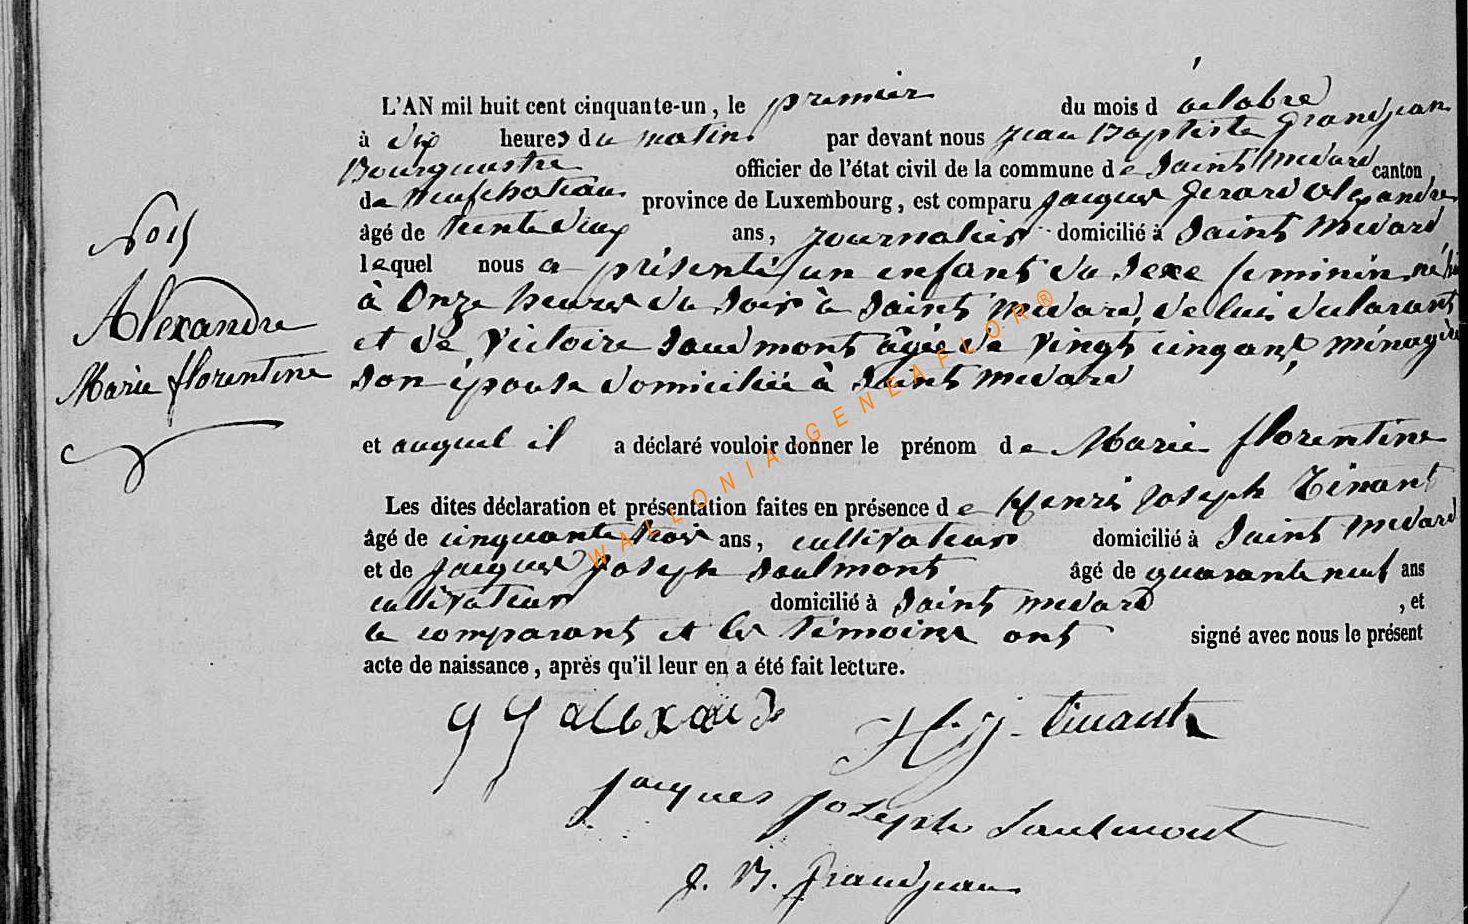 L'AN mil huit cent cinquante-un, le premier du mois d'octobre
à dix heures du matin par devant nous Jean Baptiste Grandjean
Bourgmestre officier de l'état civil de la commune de Saint Medard canton
de Neufchateau province de Luxembourg, est comparu Jacques Gerard Alexandre
âgé de trente deux ans, journalier domicilié à Saint Medard
lequel nous a présenté un enfant du sexe feminin né hier
à Onze heures du soir à Saint Medard, de lui déclarant
et de Victoire Saudmont âgée de vingt cinq ans, ménagère
son épouse domiciliée à Saint Medard
et auquel il a déclaré vouloir donner le prénom de Marie florentine
Les dites déclaration et présentation faites en présence de Henri Joseph Tinant
âgé de cinquante trois ans, cultivateur domicilié à Saint Medard
et de Jacques Joseph Saulmont âgé de quarante neuf ans
cultivateur domicilié à Saint Medard, et
le comparant et les témoins ont signé avec nous le présent
acte de naissance, après qu'il leur en a été fait lecture.
Alexandre
Marie florentine
WALLONIA-GENEAFLOR®
G G alexandre
H. J. Tinant
Jacques Joseph Saulmont
J. B. Grandjean